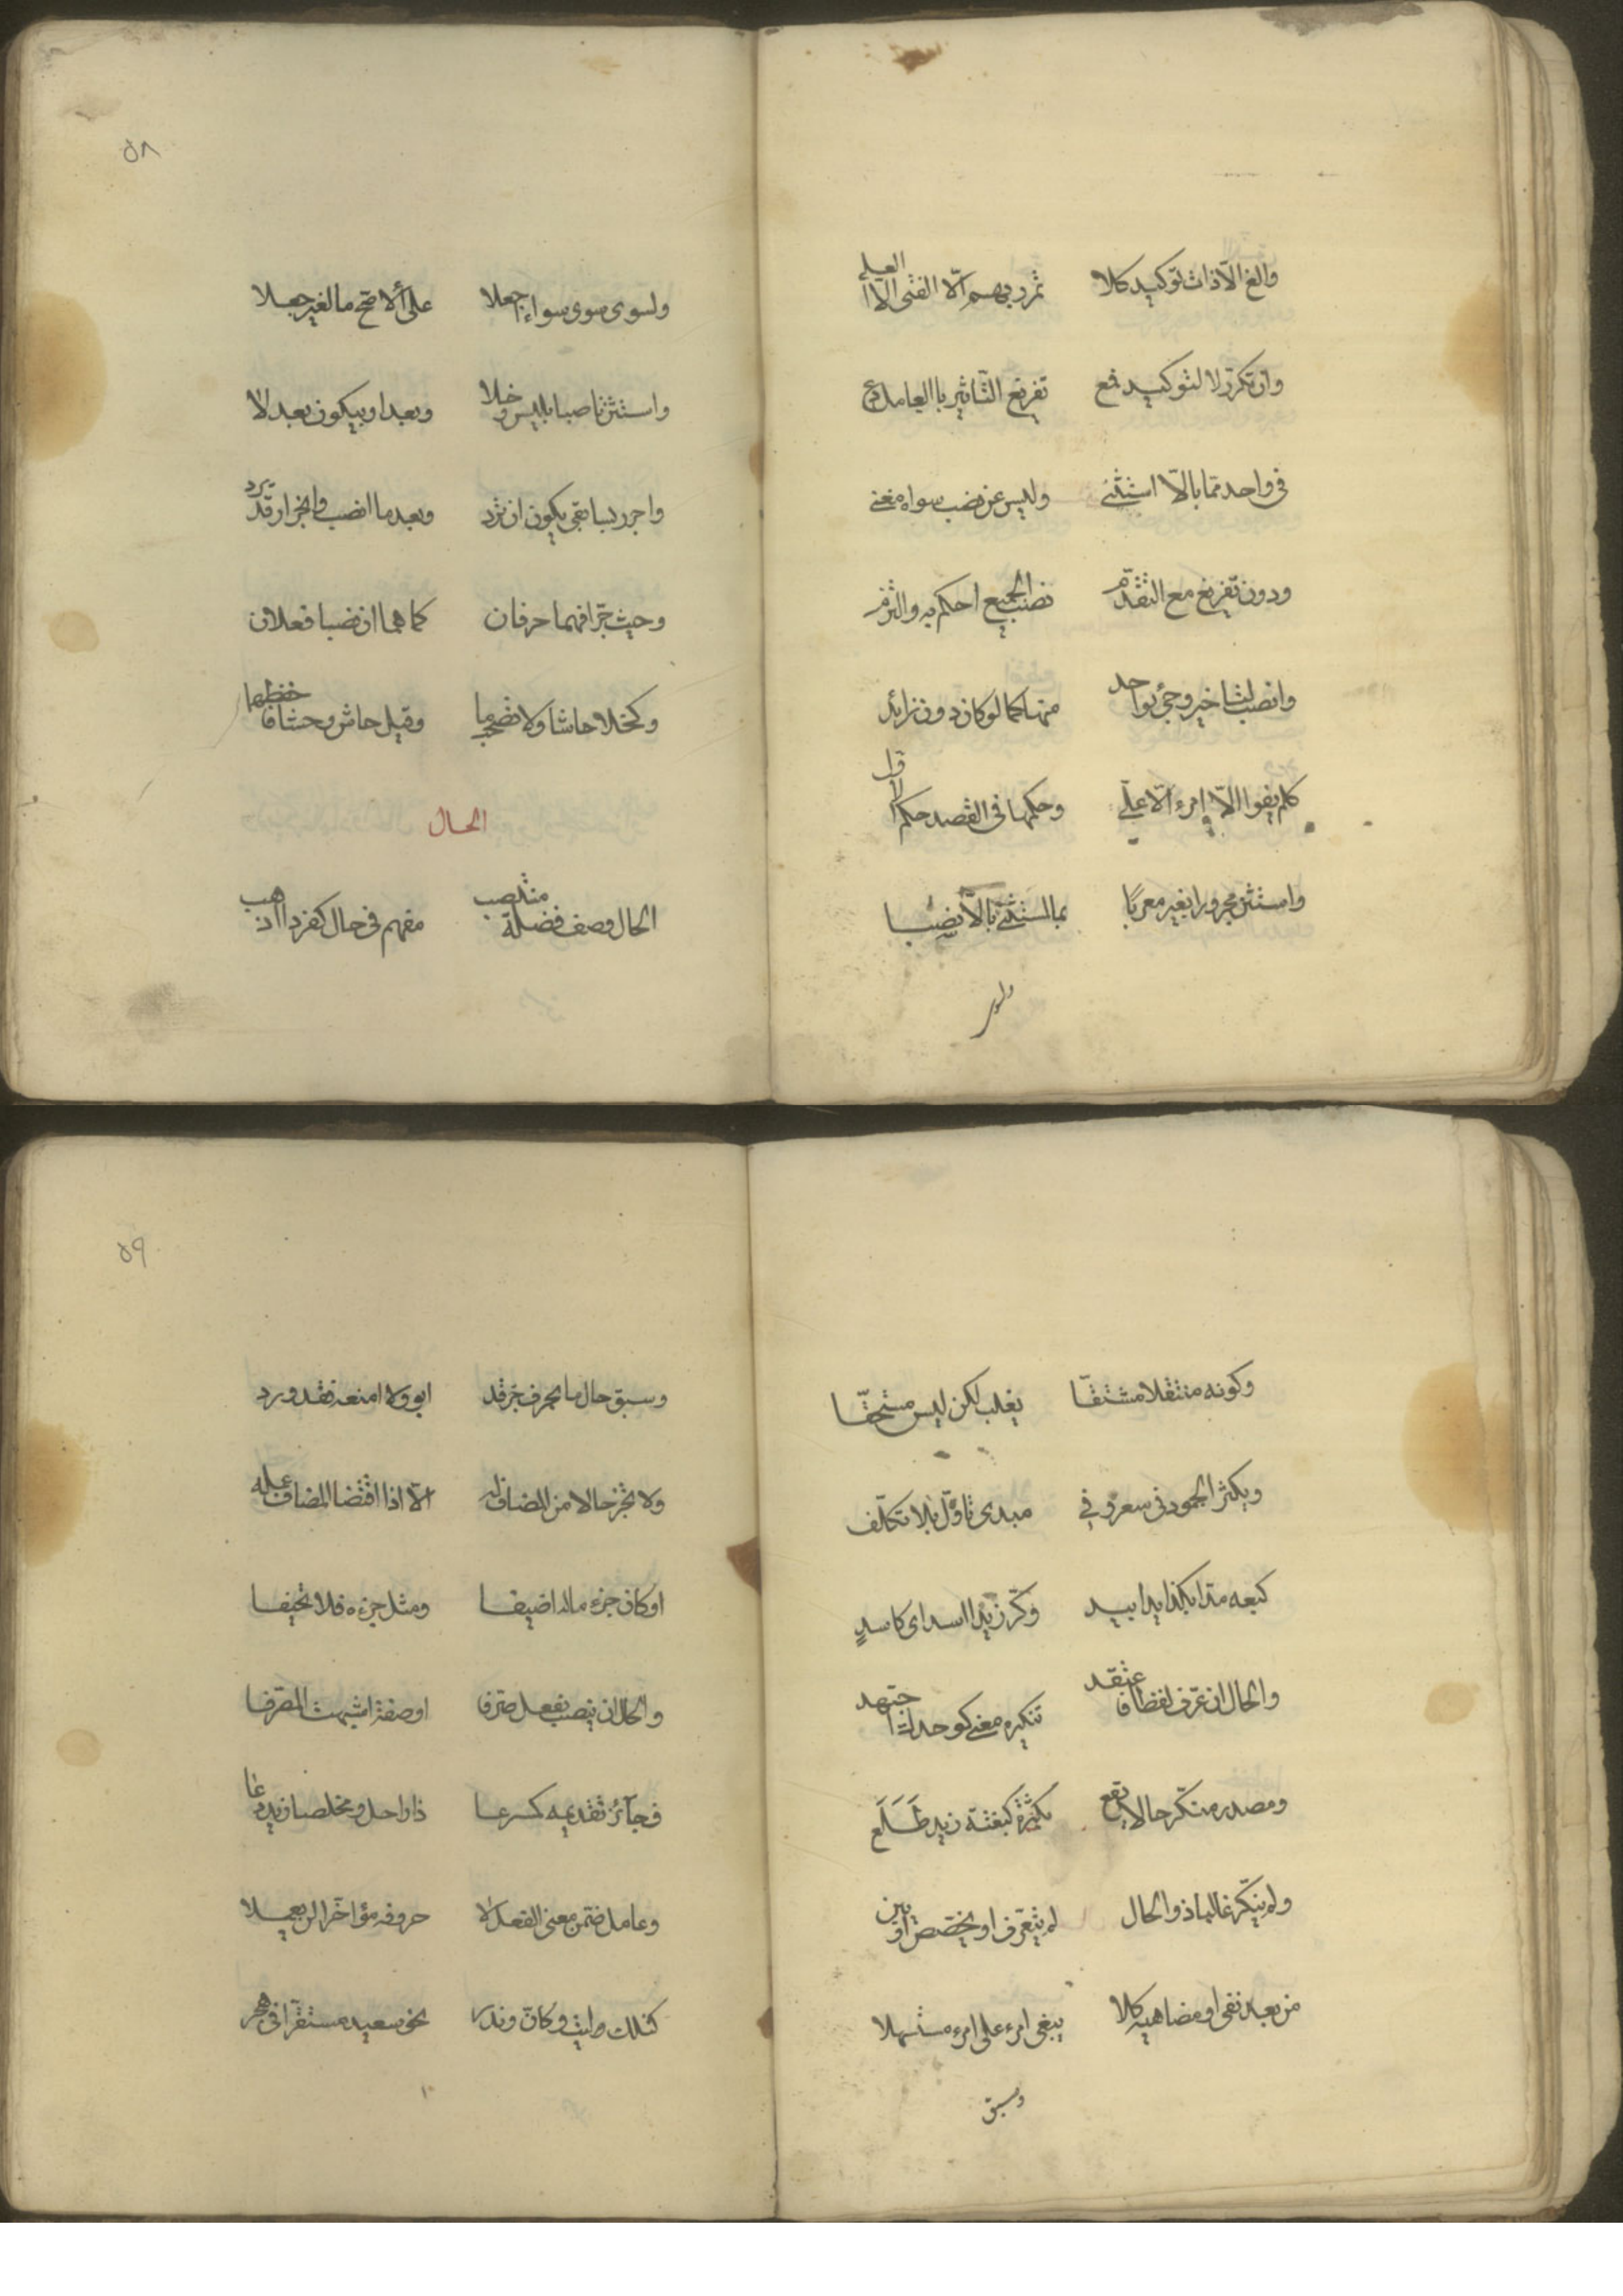 والغ الّا ذات توكيد كلا تمرر بهم الّا الفتى الّا العلى
وان تكرّر لا لتوكيد فمع تفريغ التّأثير بالعامل دع
فى واحد ممّا بالّا استثنى وليس عن نصب سواه مغنى
ودون تفريغ مع التّقدّم نصب الجميع احكم به والتزم
وانصب لتاخير وجئ بواحد منها كما لو كان دون زائد
كلم يفوا الّا امرء الّا على وحكمها فى القصد حكم الاوّل
واستثن مجرورا بغير معربًا بما لمستثنى بالّا نصبا
ولسوى
٥٨
ولسوى سوى سواء اجعلا على الاصح ما لغير جعلا
واستثن ناصبا بليس وخلا وبعدا وبيكون بعد لا
واجرر بسابقى يكون ان ترد وبعد ما انصب وانجرار قد يرد
وحيث جرّا فهما حرفان كما هما ان نصبا فعلان
وكخلا حاشا ولا تصحب ما وقيل حاش وحشا فاحفظهما
الحال
الحال وصف فضلة منتصب مفهم فى حال كفردا اذهب
وكونه منتقلا مشتقّا يغلب لكن ليس مستحقّا
ويكثر الجمود فى سعر وفي مبدى تاوّل بلا تكلّف
كبعه مدّا بكذا يدا بيد وكرّ زيد اسدا اى كاسدٍ
والحال ان عرّف لفظا فاعتقد تنكيره معنى كوحدك اجتهد
ومصدر منكّر حالا يقع بكثرة كبغتة زيد طَلَعَ
ولم ينكّر غالبا ذو الحال ان لم يتعرّف او يخصّص او يبن
من بعد نفى او مضاهيه كلا يبغى امرء على امرء مستسهلا
وسبق
٥٩
وسبق حال ما بحرف جرّ قد ابوا ولا امنعه فقد ورد
ولا تجز حالا من المضاف له الّا اذا اقتضا المضاف عمله
او كان جزء ما له اضيفا ومثل جزءه فلا تحيفا
والحال ان ينصب بفعل صرّفا او صفة اشبهت المصرّفا
فجائز تقديمه كمسرعا ذا راحل ومخلصا زيد دعا
وعامل ضمّن معنى الفعل لا حروفه مؤخّرا لن يعملا
كتلك وليت وكانّ وندر نحو سعيد مستقرّا فى هجر